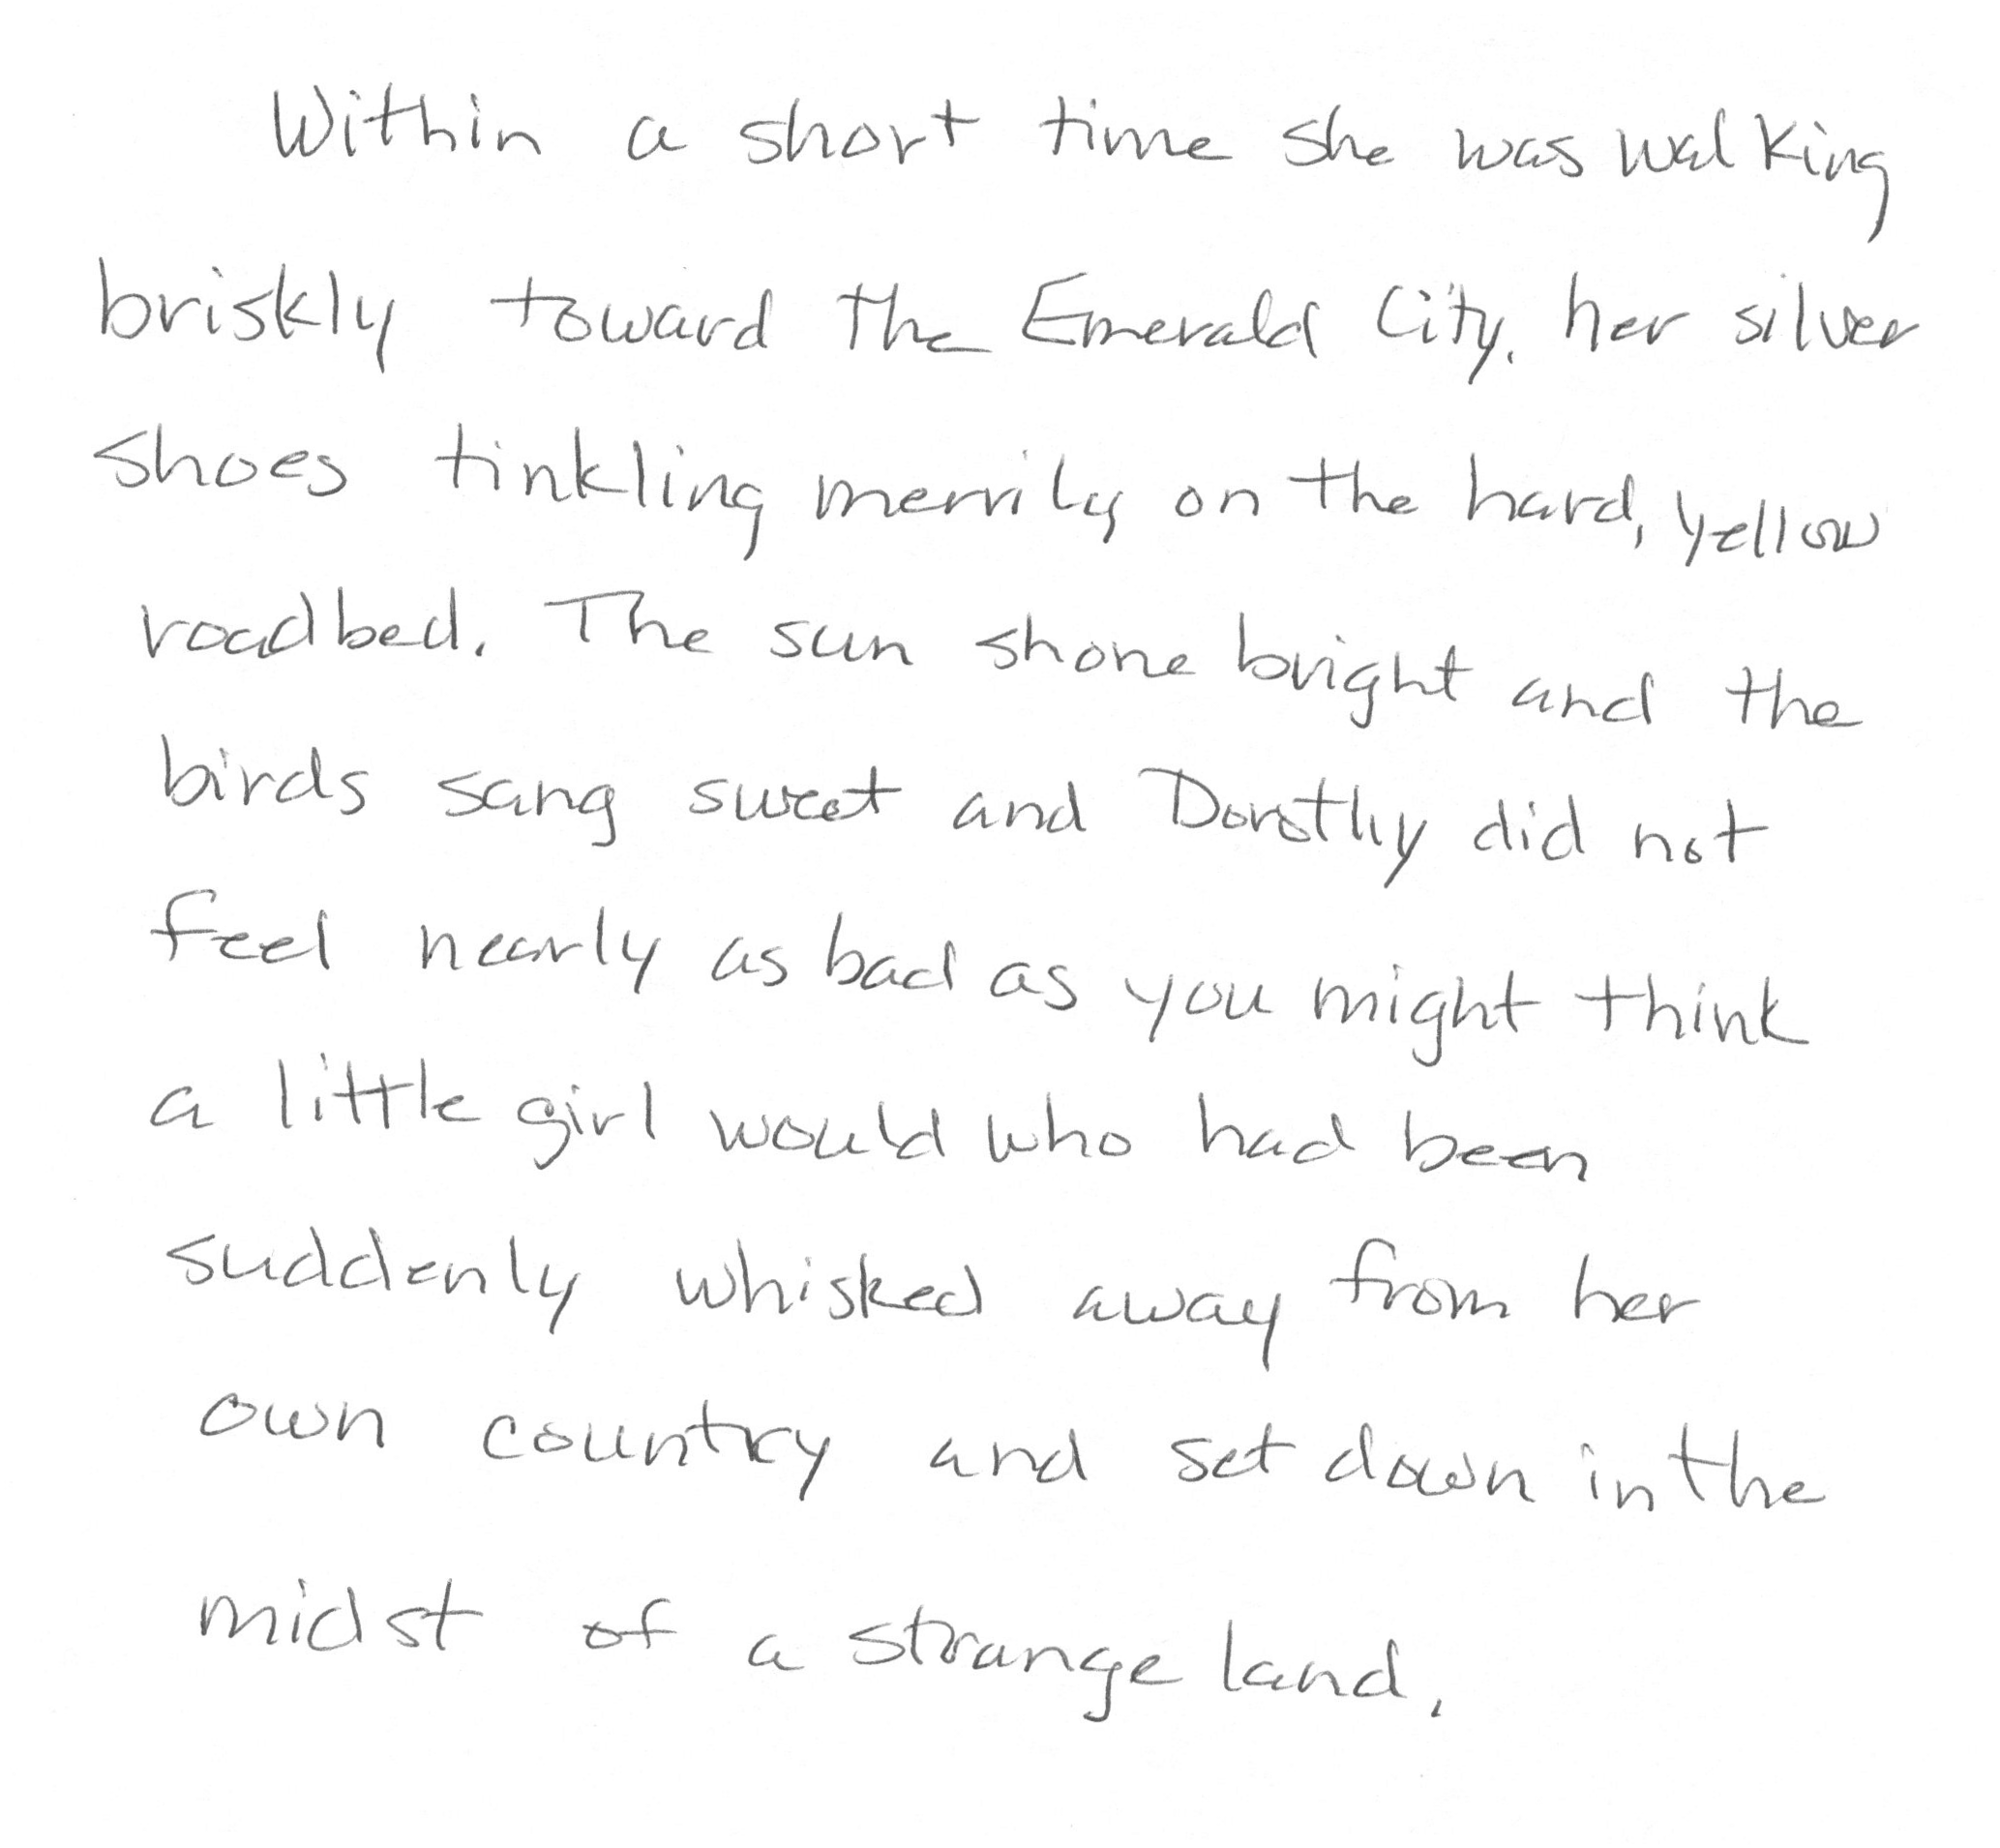 Within a short time she was walking
briskly toward the Emerald City, her silver
shoes tinkling merrily on the hard, yellow
roadbed. The sun shone bright and the
birds sang sweet and Dorothy did not
feel nearly as bad as you might think
a little girl would who had been
suddenly whisked away from her
own country and set down in the
midst of a strange land.